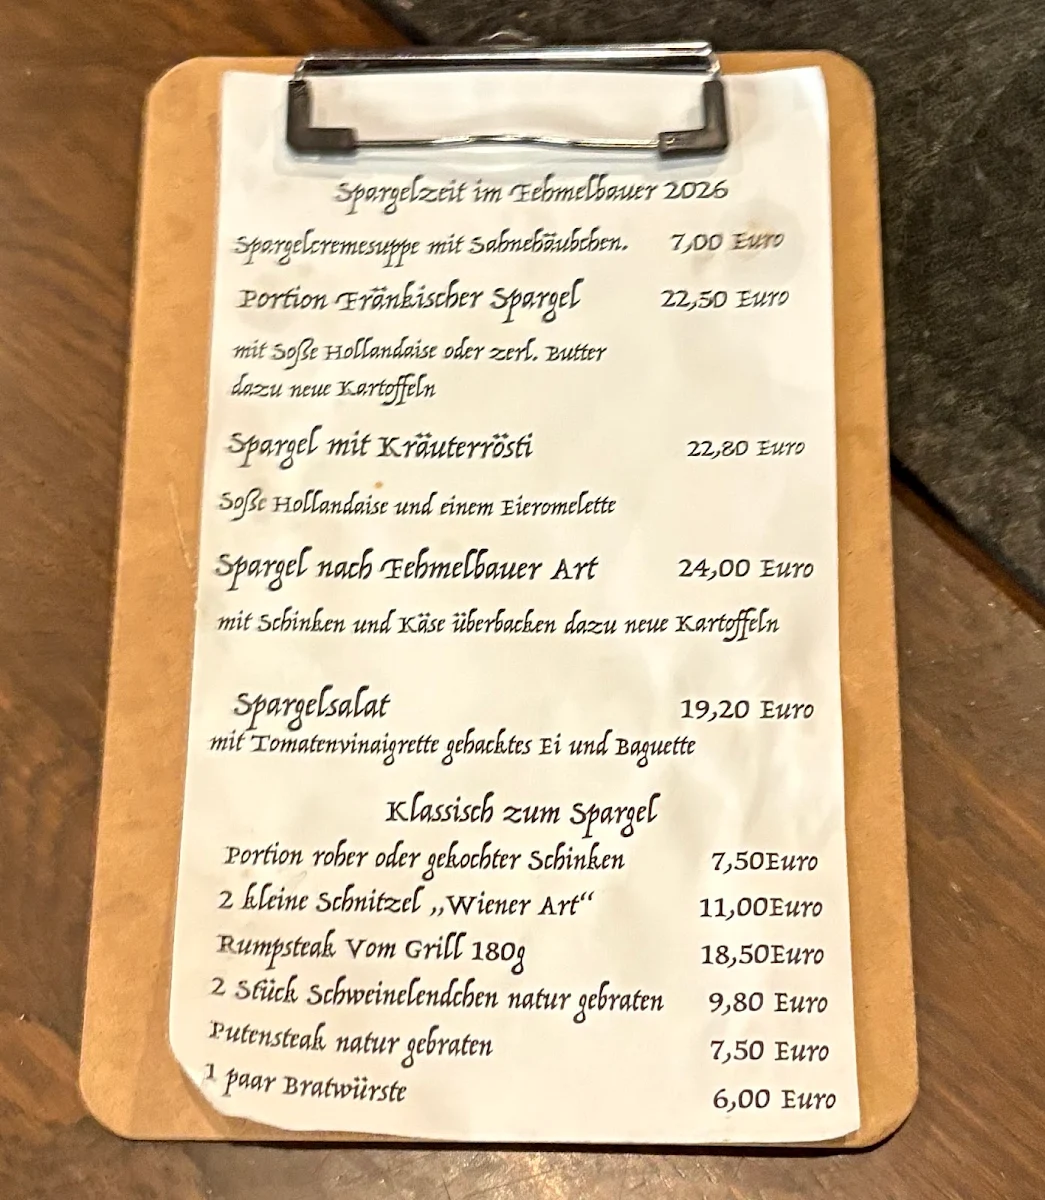 Spargelzeit im Fehmelbauer 2026
Spargelcremesuppe mit Sahnehäubchen. 7,00 Euro
Portion Fränkischer Spargel 22,50 Euro
mit Soße Hollandaise oder zerl. Butter
dazu neue Kartoffeln
Spargel mit Kräuterrösti 22,80 Euro
Soße Hollandaise und einem Eieromelette
Spargel nach Fehmelbauer Art 24,00 Euro
mit Schinken und Käse überbacken dazu neue Kartoffeln
Spargelsalat 19,20 Euro
mit Tomatenvinaigrette gehacktes Ei und Baguette
Klassisch zum Spargel
Portion roher oder gekochter Schinken 7,50Euro
2 kleine Schnitzel „Wiener Art“ 11,00Euro
Rumpsteak Vom Grill 180g 18,50Euro
2 Stück Schweinelendchen natur gebraten 9,80 Euro
Putensteak natur gebraten 7,50 Euro
1 paar Bratwürste 6,00 Euro